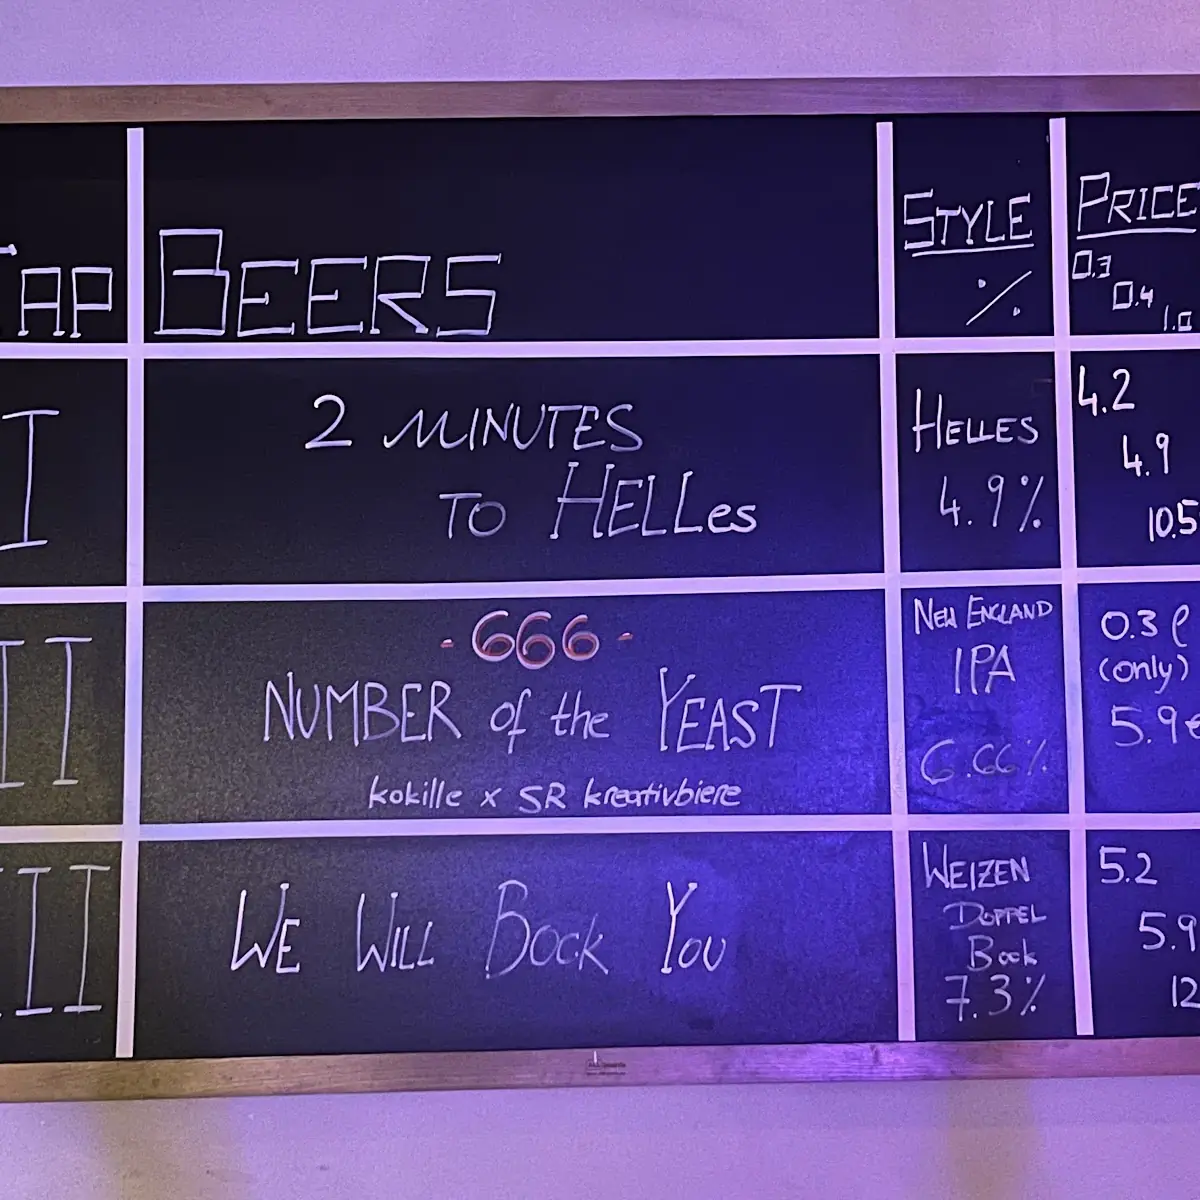 TAP
BEERS
STYLE
%
PRICE
0.3
0.4
1.0
I
2 MINUTES
TO HELLes
HELLES
4.9%
4.2
4.9
10.5
II
- 666 -
NUMBER of the YEAST
kokille x SR kreativbiere
NEW ENGLAND
IPA
6.66%
0.3 ℓ
(only)
5.9€
III
WE WILL BOCK YOU
WEIZEN
DOPPEL
Bock
7.3%
5.2
5.9
12